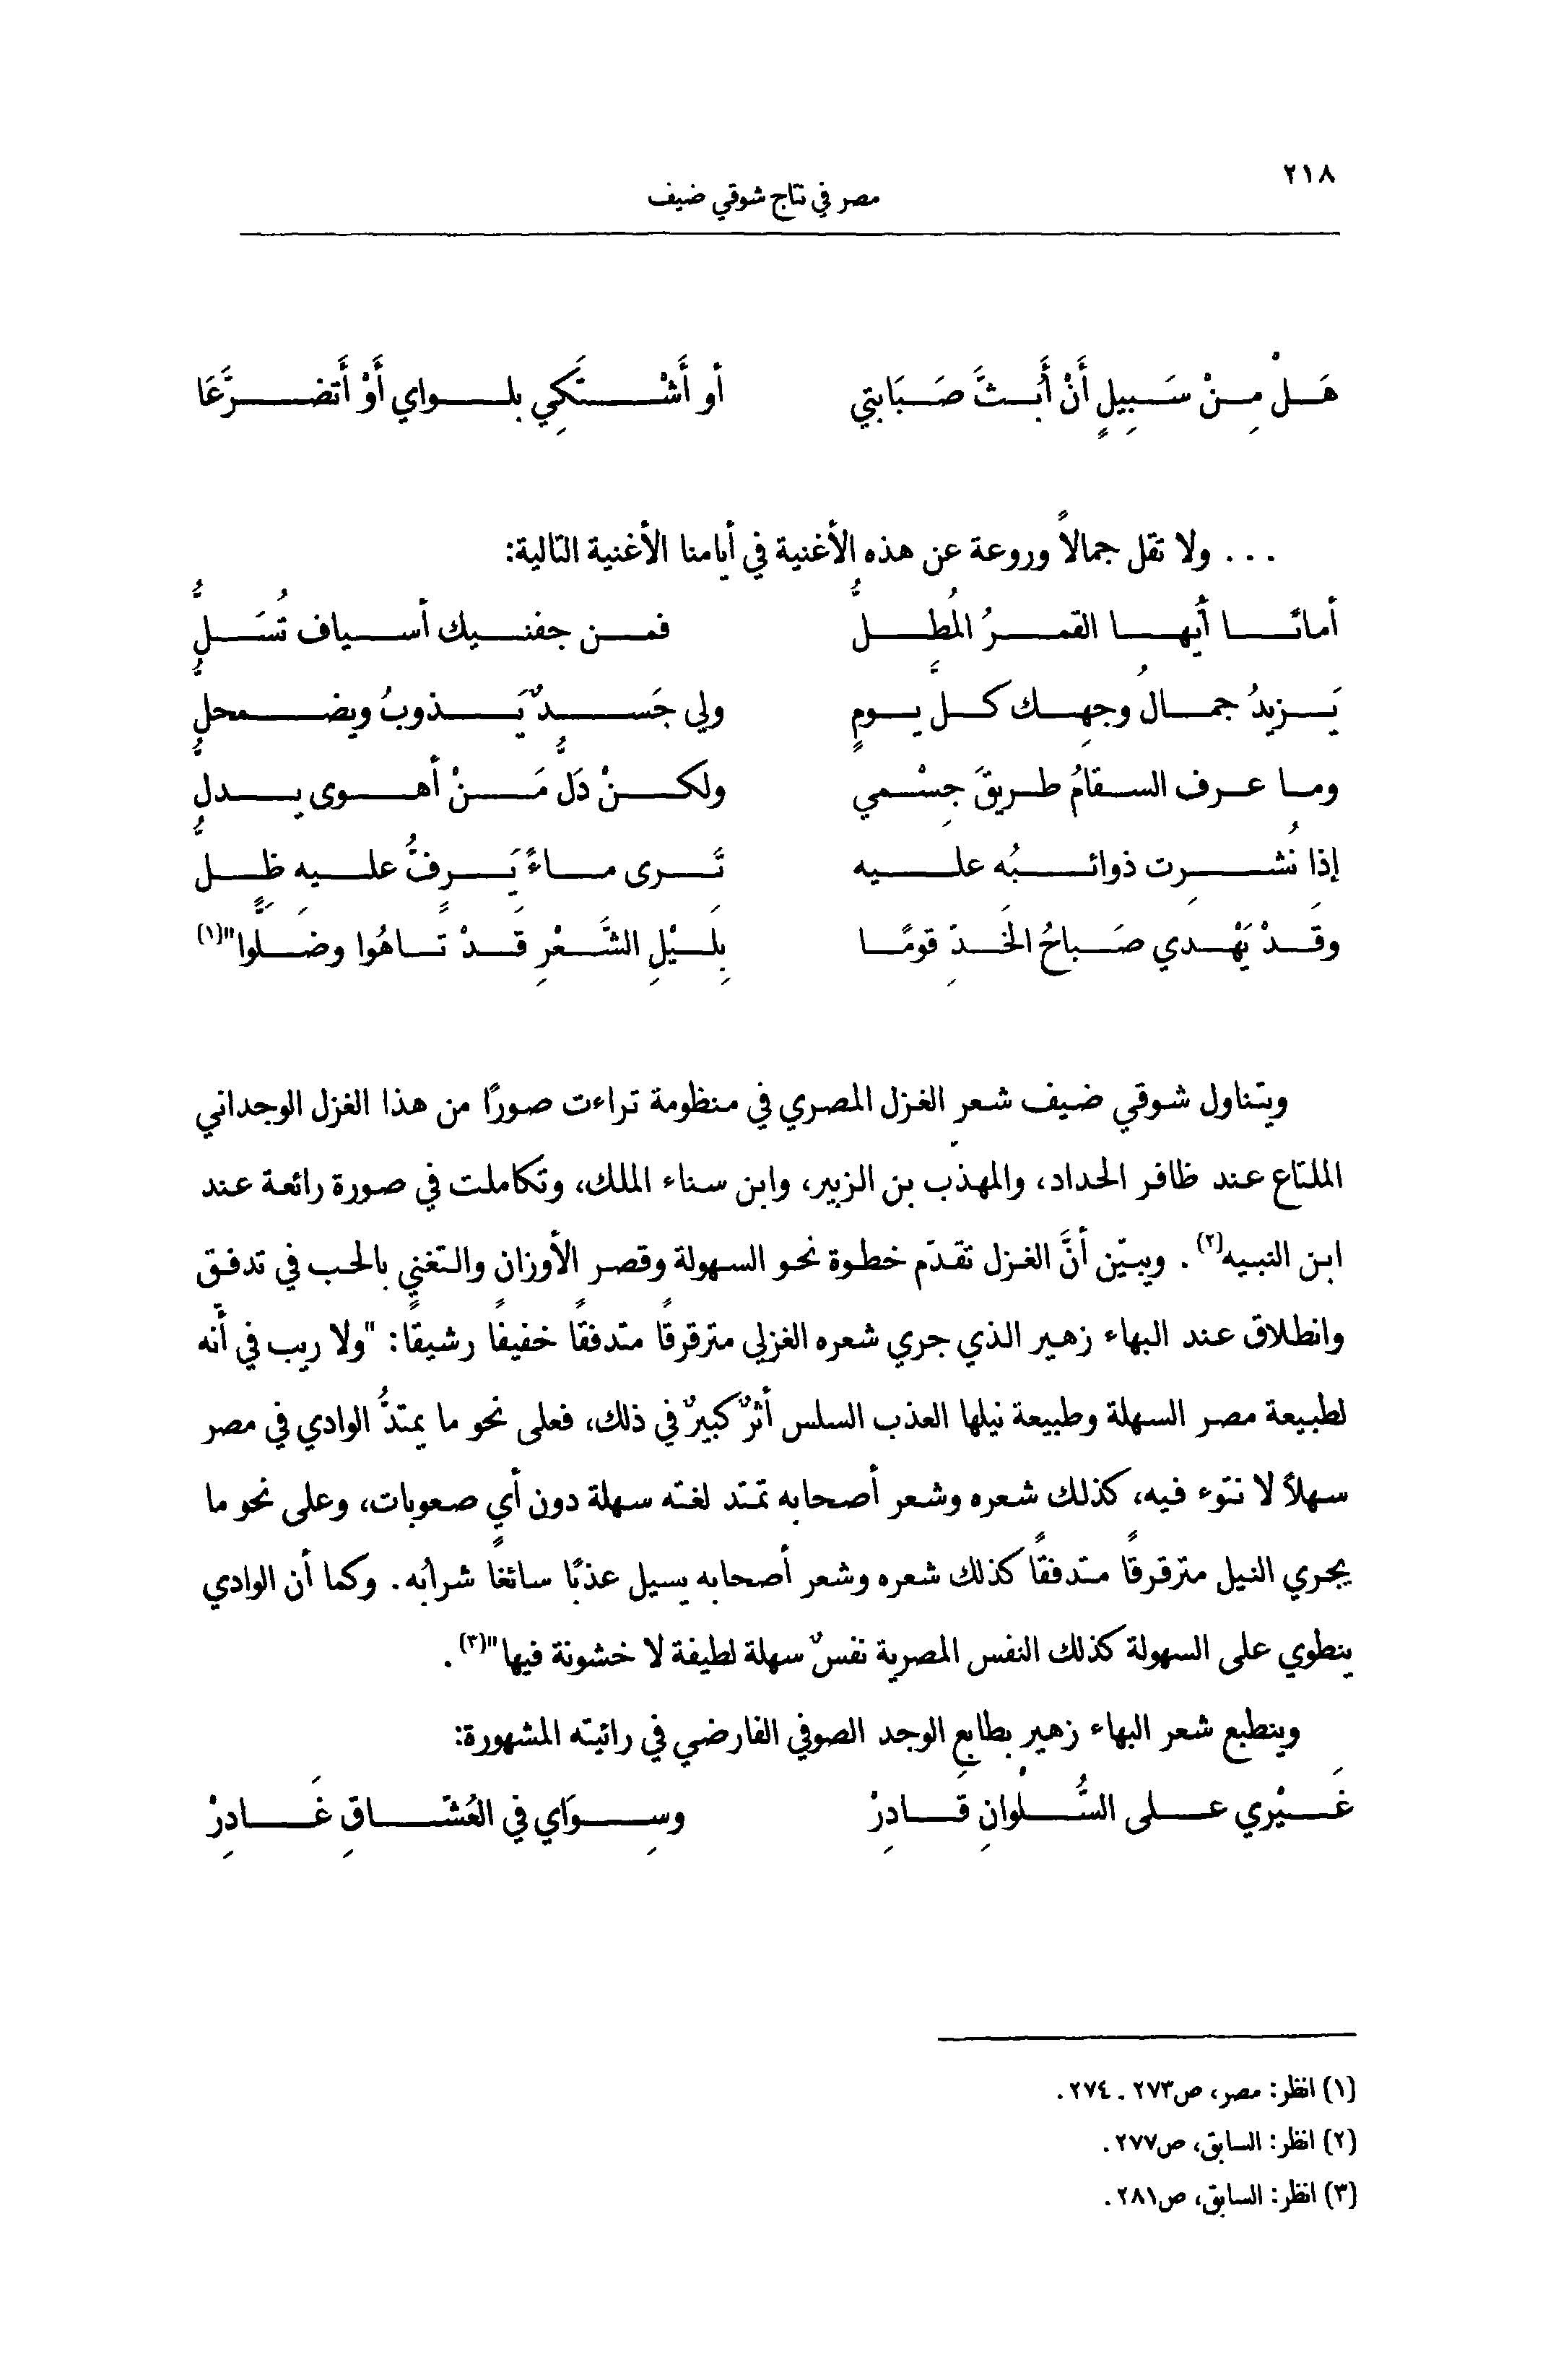 ٢١٨
مصر في نتاج شوقي ضيف
هَلْ مِنْ سَبِيلٍ أَنْ أَبُثَّ صَبَابتي أو أَشْتَكِي بلواي أَوْ أَتضرَّعَا
... ولا تقل جمالاً وروعة عن هذه الأغنية في أيامنا الأغنية التالية:
أمانًا أيُها القمرُ المُطلُّ فمن جفنيك أسياف تُسَلُّ
يَزيدُ جمالُ وجهِك كلَّ يومٍ ولي جَسدٌ يَذوبُ ويضمحلُّ
وما عرف السقامُ طريقَ جِسْمي ولكنْ دَلُّ مَنْ أهوى يدلُّ
إذا نُشرت ذوائبُه عليه تَرى ماءً يَرِفُّ عليه ظِلُّ
وقَدْ يَهْدي صَباحُ الخَدِّ قومًا بِلَيْلِ الشَّعْرِ قَدْ تَاهُوا وضَلُّوا"(١)
ويتناول شوقي ضيف شعر الغزل المصري في منظومة تراءت صورًا من هذا الغزل الوجداني
الملتاع عند ظافر الحداد، والمهذّب بن الزبير، وابن سناء الملك، وتكاملت في صورة رائعة عند
ابن النبيه(٢). ويبيّن أنَّ الغزل تقدّم خطوة نحو السهولة وقصر الأوزان والتغني بالحب في تدفق
وانطلاق عند البهاء زهير الذي جري شعره الغزلي مترقرقًا متدفقًا خفيفًا رشيقًا: "ولا ريب في أنّه
لطبيعة مصر السهلة وطبيعة نيلها العذب السلس أثرٌ كبيرٌ في ذلك، فعلى نحو ما يمتدُّ الوادي في مصر
سهلاً لا نتوء فيه، كذلك شعره وشعر أصحابه تمتد لغته سهلة دون أي صعوبات، وعلى نحو ما
يجري النيل مترقرقًا متدفقًا كذلك شعره وشعر أصحابه يسيل عذبًا سائغًا شرابُه. وكما أن الوادي
ينطوي على السهولة كذلك النفس المصرية نفسٌ سهلة لطيفة لا خشونة فيها"(٣).
وينطبع شعر البهاء زهير بطابع الوجد الصوفي الفارضي في رائيته المشهورة:
غَيْري على السُّلْوانِ قَادِرْ وسِوَاي في العُشّاقِ غَادِرْ
(١) انظر: مصر، ص٢٧٣ - ٢٧٤.
(٢) انظر: السابق، ص٢٧٧.
(٣) انظر: السابق، ص٢٨١.